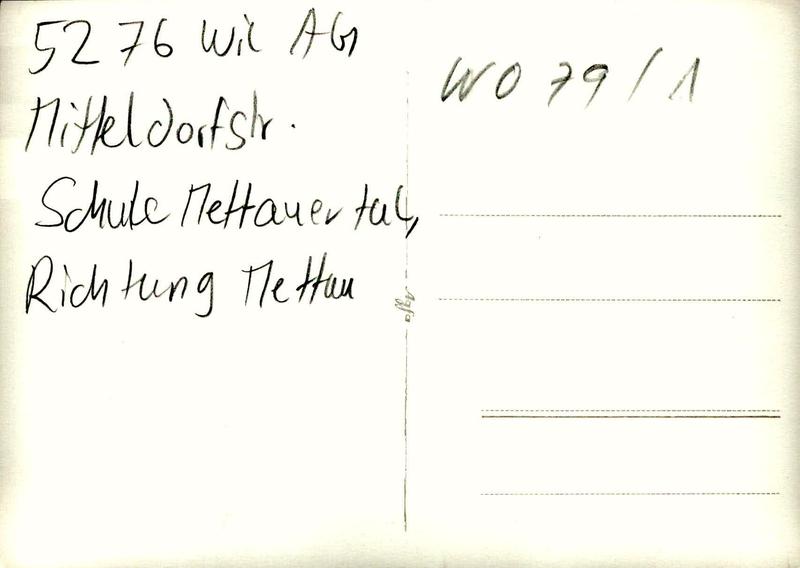 5276 Wil AG
Mitteldorfstr.
Schule Mettauertal,
Richtung Mettau
WO 79/1
Agfa